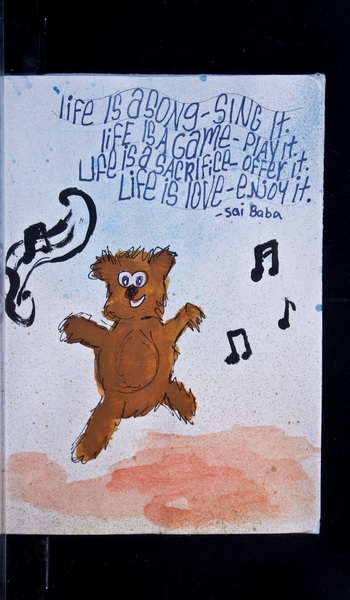 life is a song - sing it.
life is a game - play it.
life is a sacrifice - offer it.
life is love - enjoy it.
- Sai Baba